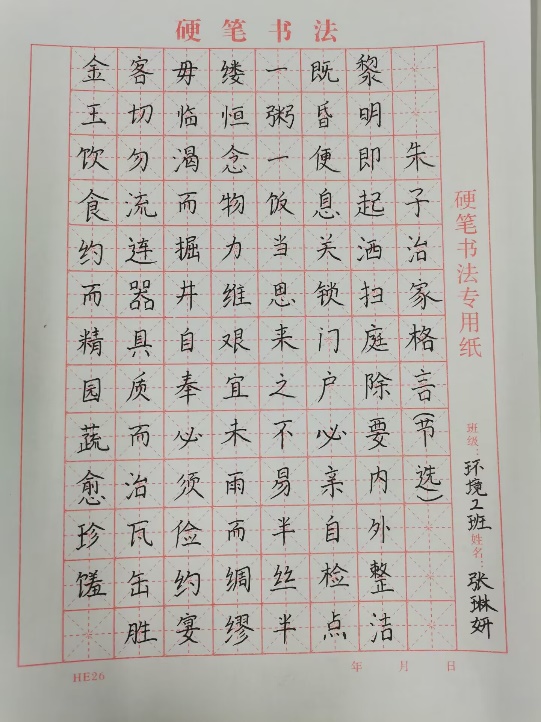 硬笔书法
朱子治家格言(节选)
黎明即起洒扫庭除要内外整洁
既昏便息关锁门户必亲自检点
一粥一饭当思来之不易半丝半
缕恒念物力维艰宜未雨而绸缪
毋临渴而掘井自奉必须俭约宴
客切勿流连器具质而治瓦缶胜
金玉饮食约而精园蔬愈珍馐
硬笔书法专用纸
班级:环境2班 姓名 张琳妍
HE26
年 月 日